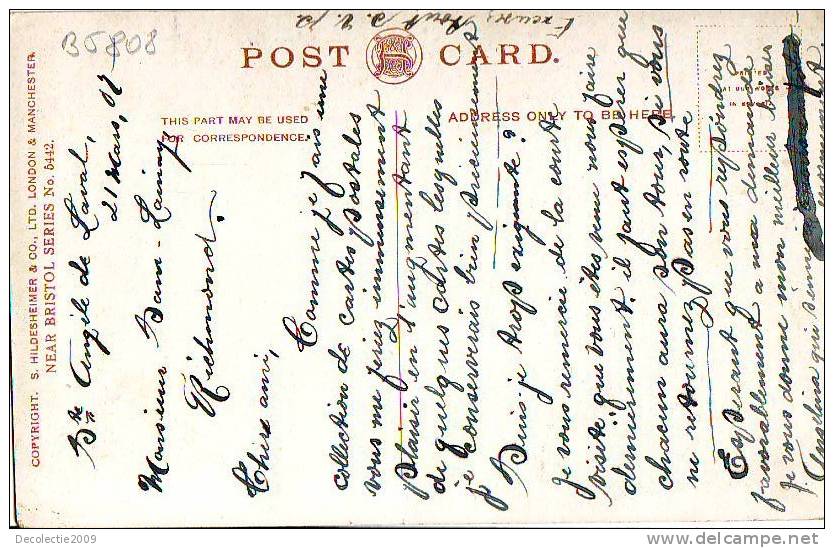 B5808
Excusez tout S.V.P.
POST CARD.
THIS PART MAY BE USED
FOR CORRESPONDENCE.
ADDRESS ONLY TO BE HERE
COPYRIGHT. S. HILDESHEIMER & CO., LTD. LONDON & MANCHESTER.
NEAR BRISTOL SERIES No. 5442.
Ste Angèle de Laval,
21 Mars, 07
Monsieur Sam
Richmond.
Cher ami,
Comme je fais une
collection de cartes postales
vous me feriez immensément
plaisir en l'augmentant
de quelques cartes lesquelles
je conserverais bien précieusement
Puis-je trop exigente?
Je vous remercie de la courte
visite que vous êtes venu nous faire
dernièrement. il faut espérer que
chacun aura son tour, si vous
ne retournez pas en route
Espérant que vous repondrez
favorablement a ma demande
je vous donne mon meilleur
Angelina qui
Delcolectie2009